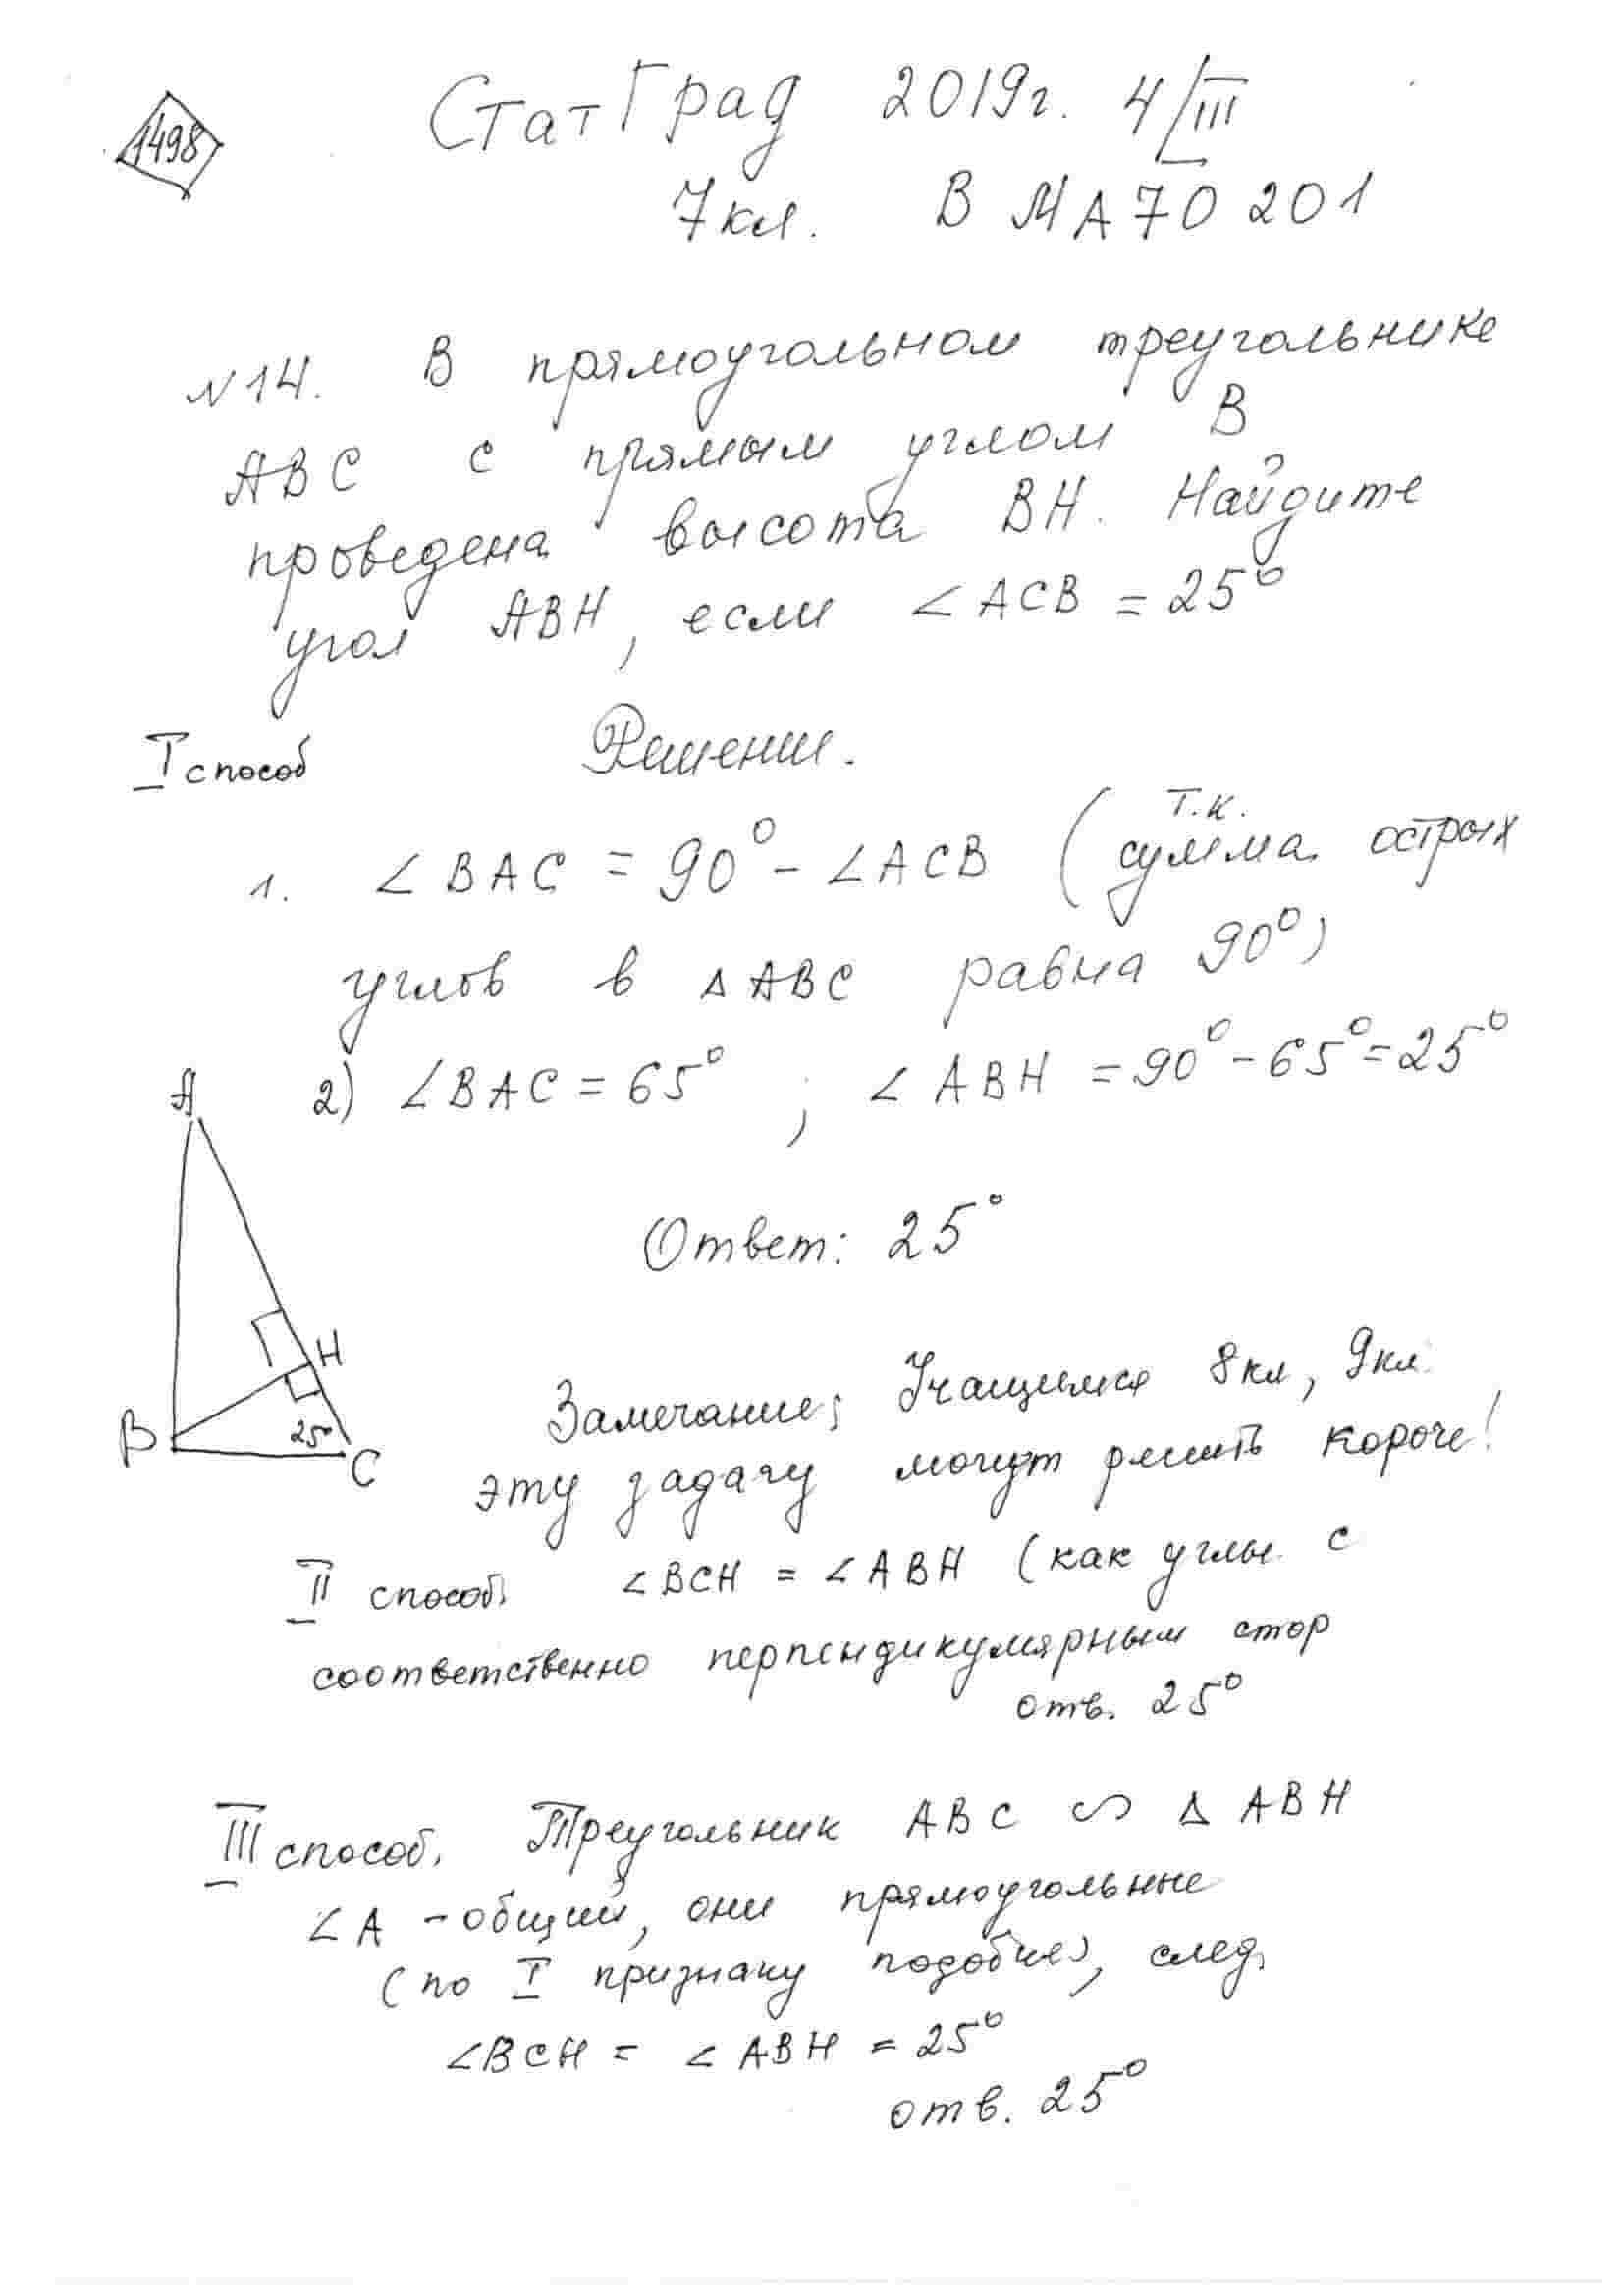 1498
СтатГрад 2019г. 4/III
7кл. В МА70201
№14. В прямоугольном треугольнике
АВС с прямым углом В
проведена высота ВН. Найдите
угол АВН, если ∠АСВ = 25°
I способ Решение.
1. ∠ВАС = 90° - ∠АСВ (т.к. сумма острых
углов в ΔАВС равна 90°)
2) ∠ВАС = 65° ; ∠АВН = 90° - 65° = 25°
А
Н
В
25°
С
Ответ: 25°
Замечание; Учащимся 8кл, 9кл.
эту задачу могут решить короче!
II способ. ∠ВСН = ∠АВН (как углы с
соответственно перпендикулярным стор
отв. 25°
III способ. Треугольник АВС ∽ Δ АВН
∠А - общий, они прямоугольные
(по I признаку подобия), след.
∠ВСН = ∠АВН = 25°
отв. 25°